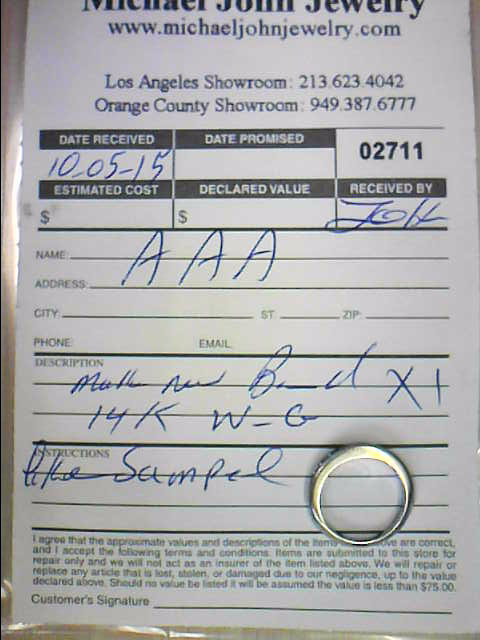 Michael John Jewelry
www.michaeljohnjewelry.com
Los Angeles Showroom: 213.623.4042
Orange County Showroom: 949.387.6777
DATE RECEIVED DATE PROMISED 02711
10-05-15
ESTIMATED COST DECLARED VALUE RECEIVED BY
$ $ John
NAME: AAA
ADDRESS:
CITY: ST: ZIP:
PHONE: EMAIL:
DESCRIPTION
make new Band X1
14K W-G
INSTRUCTIONS
like Sampel
I agree that the approximate values and descriptions of the items above are correct,
and I accept the following terms and conditions. Items are submitted to this store for
repair only and we will not act as an insurer of the item listed above. We will repair or
replace any article that is lost, stolen, or damaged due to our negligence, up to the value
declared above. Should no value be listed it will be assumed the value is less than $75.00.
Customer's Signature